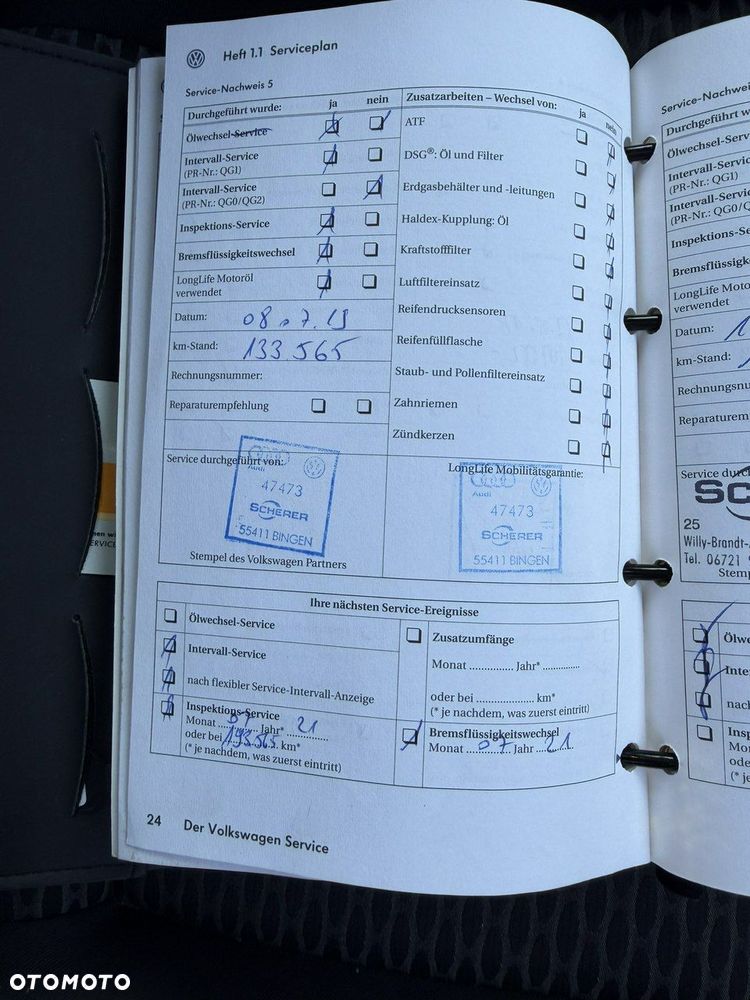 Heft 1.1 Serviceplan
Service-Nachweis 5
Durchgeführt wurde: ja nein
Ölwechsel-Service
Intervall-Service
(PR-Nr.: QG1)
Intervall-Service
(PR-Nr.: QG0/QG2)
Inspektions-Service
Bremsflüssigkeitswechsel
LongLife Motoröl
verwendet
Datum: 08.07.19
km-Stand: 133.565
Rechnungsnummer:
Reparaturempfehlung
Service durchgeführt von:
Audi
47473
SCHERER
55411 BINGEN
Stempel des Volkswagen Partners
Zusatzarbeiten – Wechsel von: ja nein
ATF
DSG®: Öl und Filter
Erdgasbehälter und -leitungen
Haldex-Kupplung: Öl
Kraftstofffilter
Luftfiltereinsatz
Reifendrucksensoren
Reifenfüllflasche
Staub- und Pollenfiltereinsatz
Zahnriemen
Zündkerzen
LongLife Mobilitätsgarantie:
Audi
47473
SCHERER
55411 BINGEN
Ihre nächsten Service-Ereignisse
Ölwechsel-Service
Intervall-Service
nach flexibler Service-Intervall-Anzeige
Inspektions-Service
Monat 07 Jahr* 21
oder bei 193.565 km*
(* je nachdem, was zuerst eintritt)
Zusatzumfänge
Monat .............. Jahr* ..............
oder bei ..................... km*
(* je nachdem, was zuerst eintritt)
Bremsflüssigkeitswechsel
Monat 07 Jahr 21
24 Der Volkswagen Service
Service-Nachweis
Durchgeführt w
Ölwechsel-Se
Intervall-Service
(PR-Nr.: QG1)
Intervall-Service
(PR-Nr.: QG0/Q
Inspektions-Se
Bremsflüssigk
LongLife Moto
verwendet
Datum: 1
km-Stand:
Rechnungsnu
Reparaturem
Service durch
SC
25
Willy-Brandt-
Tel. 06721
Stemp
Ölwe
Inter
nach
Insp
Mo
ode
(* je
OTOMOTO